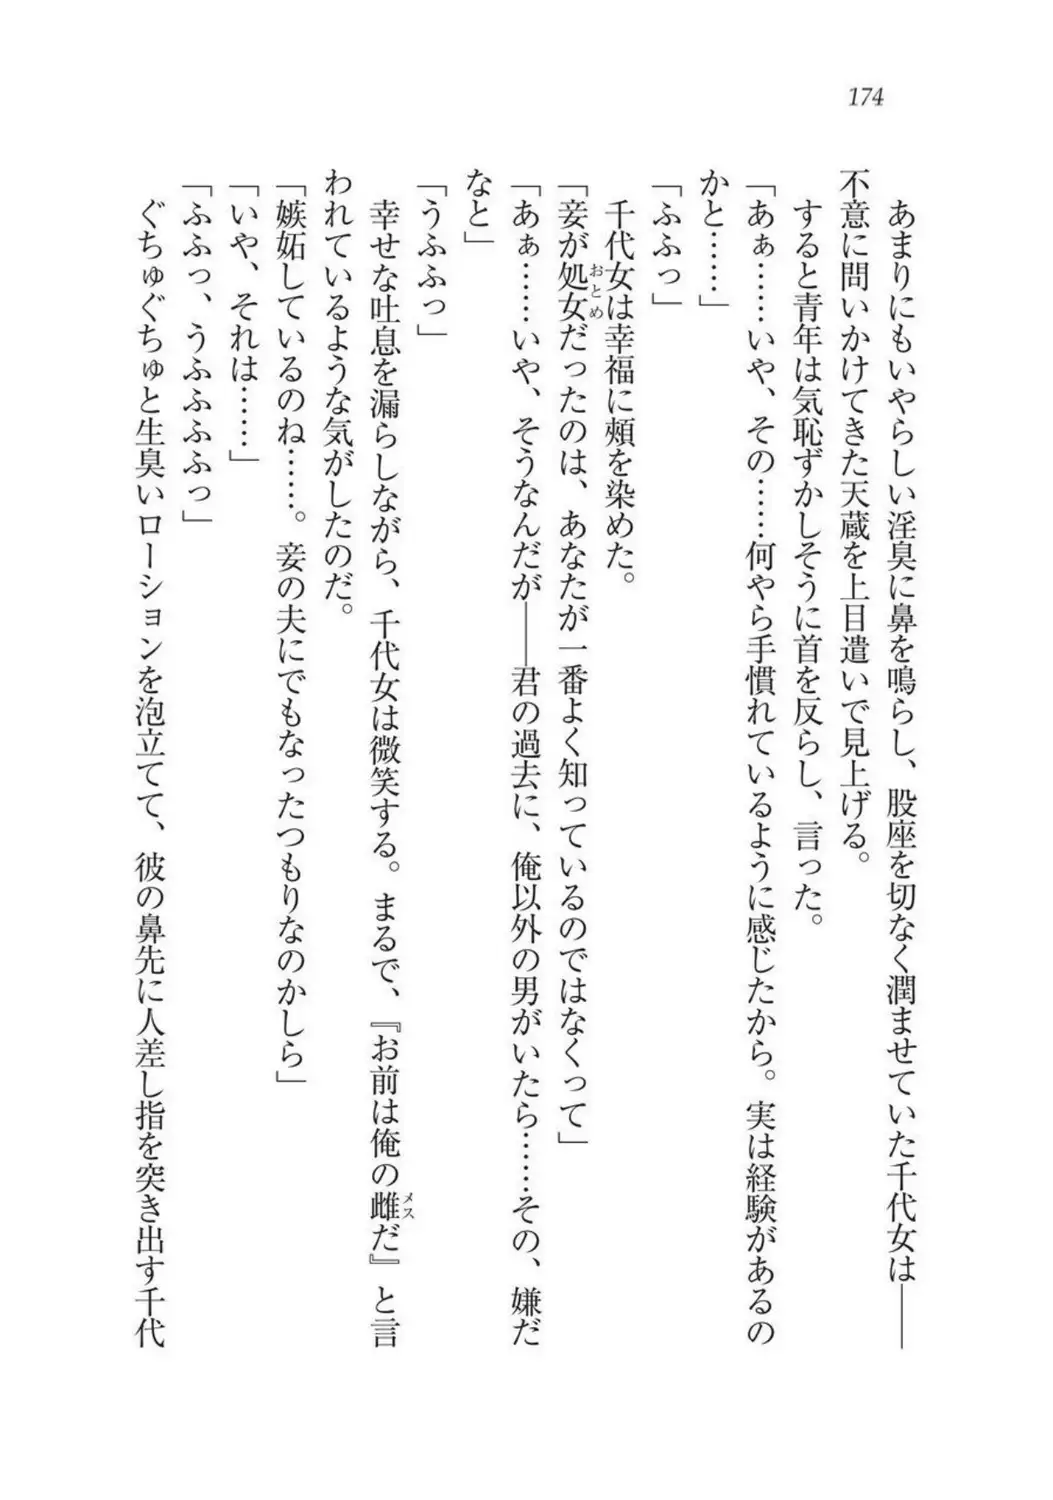 174
あまりにもいやらしい淫臭に鼻を鳴らし、股座を切なく潤ませていた千代女は――
不意に問いかけてきた天蔵を上目遣いで見上げる。
すると青年は気恥ずかしそうに首を反らし、言った。
「あぁ……いや、その……何やら手慣れているように感じたから。実は経験があるの
かと……」
「ふふっ」
千代女は幸福に頬を染めた。
「妾が処女おとめだったのは、あなたが一番よく知っているのではなくって」
「あぁ……いや、そうなんだが――君の過去に、俺以外の男がいたら……その、嫌だ
なと」
「うふふっ」
幸せな吐息を漏らしながら、千代女は微笑する。まるで、『お前は俺の雌メスだ』と言
われているような気がしたのだ。
「嫉妬しているのね……。妾の夫にでもなったつもりなのかしら」
「いや、それは……」
「ふふっ、うふふふふっ」
ぐちゅぐちゅと生臭いローションを泡立てて、彼の鼻先に人差し指を突き出す千代